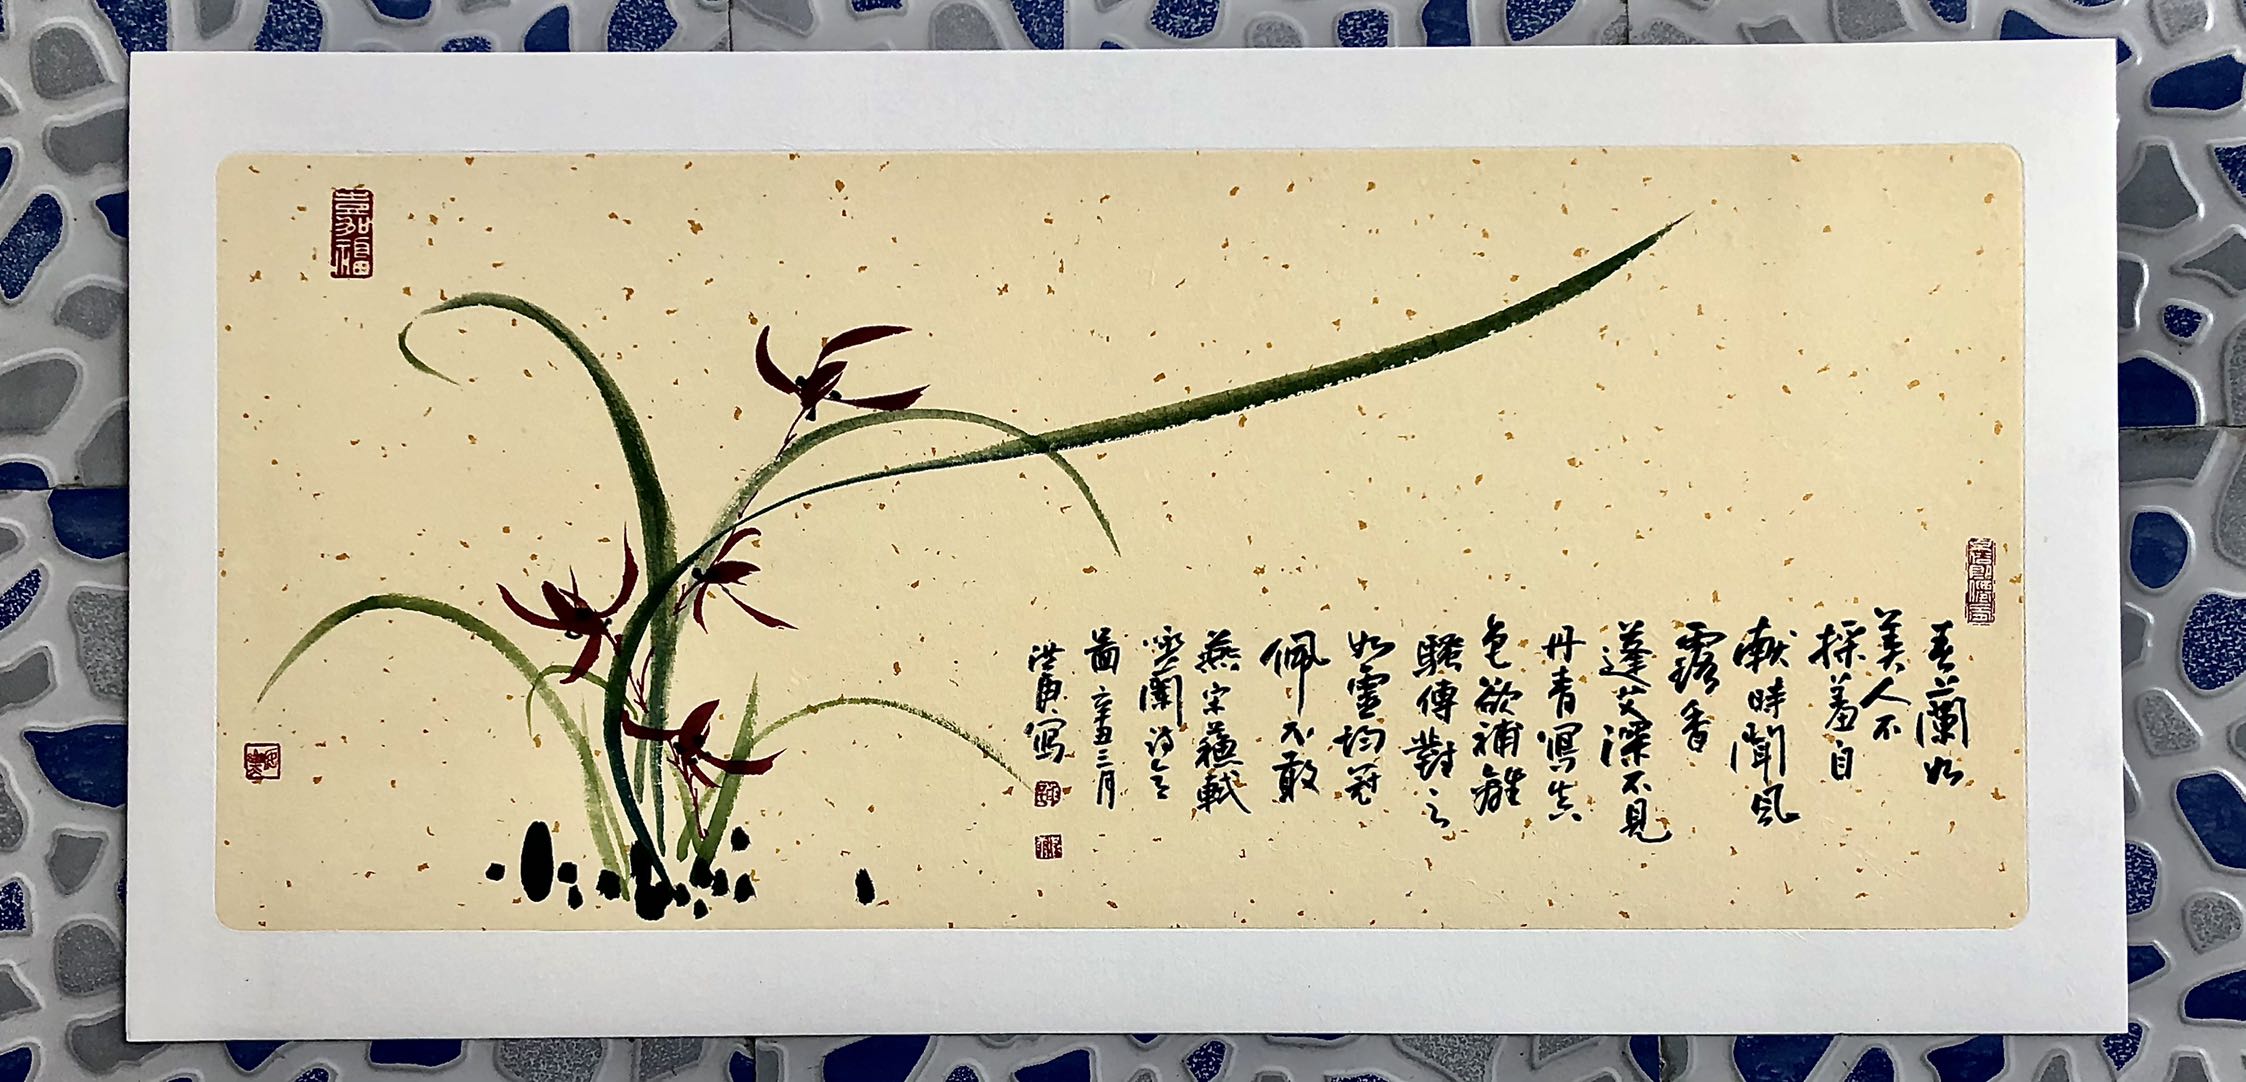 春蘭如
美人不
採羞自
献時聞風
露香
蓬艾深不見
丹青寫真
色欲補離
騷傳對之
如靈均冠
佩不敢
燕宋蘇軾
蘭诗意
圖辛丑三月
洪庚写
嘉福